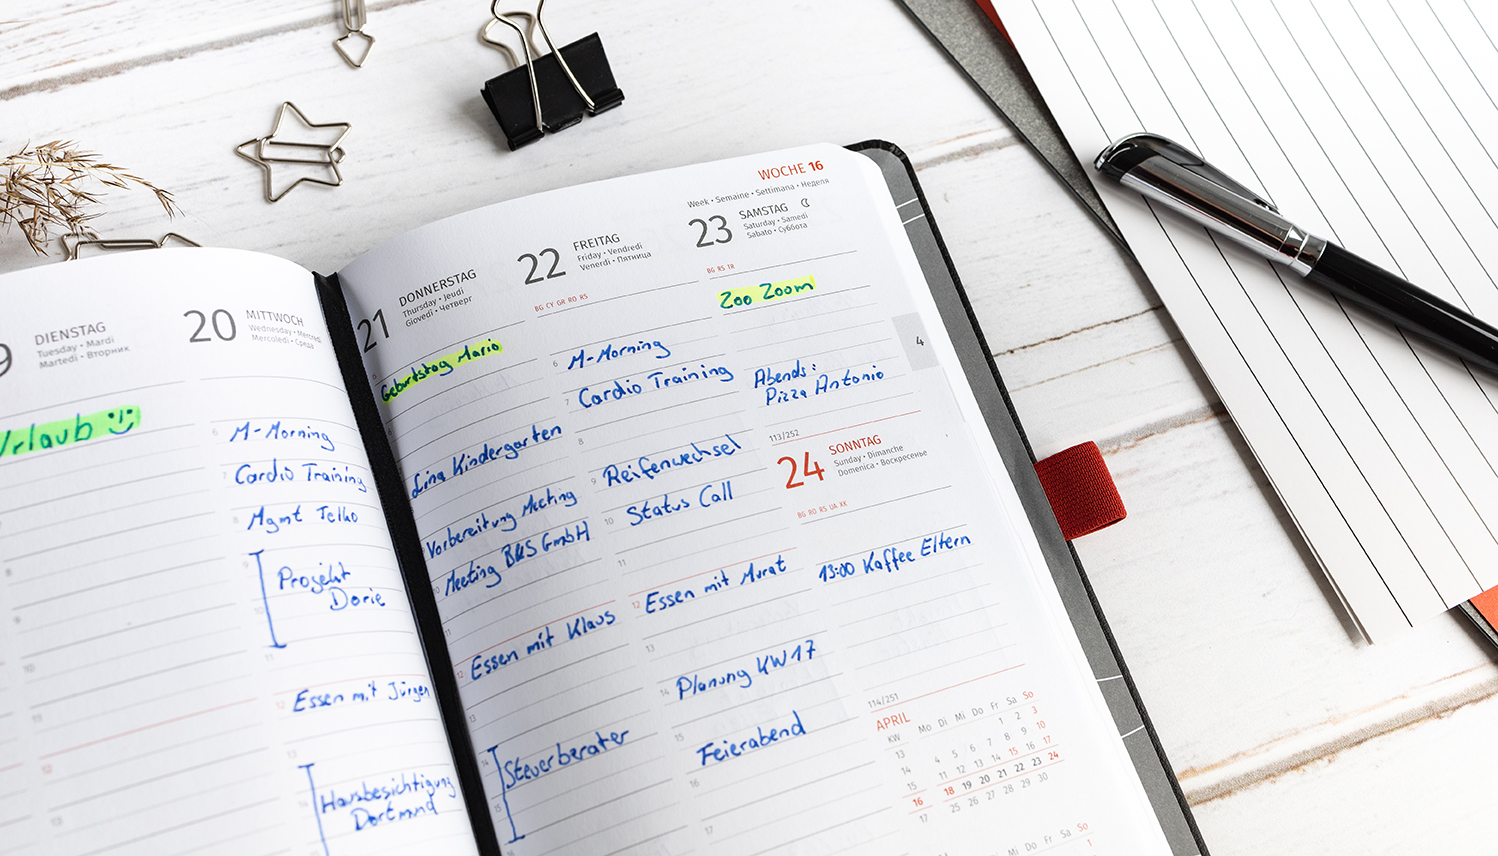 DIENSTAG
Tuesday • Mardi
Martedì • Вторник
Urlaub
20 MITTWOCH
Wednesday • Mercredi
Mercoledì • Среда
6 M-Morning
7 Cardio Training
8 Mgmt Telko
9 Projekt
10 Dorie
11
12 Essen mit Jürgen
13
Hausbesichtigung
Dortmund
21 DONNERSTAG
Thursday • Jeudi
Giovedì • Четверг
Geburtstag Mario
Lina Kindergarten
Vorbereitung Meeting
Meeting B&S GmbH
11
12 Essen mit Klaus
13
14 Steuerberater
15
22 FREITAG
Friday • Vendredi
Venerdì • Пятница
BG CY GR RO RS
6 M-Morning
7 Cardio Training
8
9 Reifenwechsel
10 Status Call
11
12 Essen mit Murat
13
14 Planung KW 17
15 Feierabend
16
17
WOCHE 16
Week • Semaine • Settimana • Неделя
23 SAMSTAG
Saturday • Samedi
Sabato • Суббота
BG RS TR
Zoo Zoom
4
Abends:
Pizza Antonio
113/252
24 SONNTAG
Sunday • Dimanche
Domenica • Воскресенье
BG RO RS UA XK
13:00 Kaffee Eltern
114/251
APRIL
KW Mo Di Mi Do Fr Sa So
13 1 2 3
14 4 5 6 7 8 9 10
15 11 12 13 14 15 16 17
16 18 19 20 21 22 23 24
17 25 26 27 28 29 30
Mo Di Mi Do Fr Sa So
1